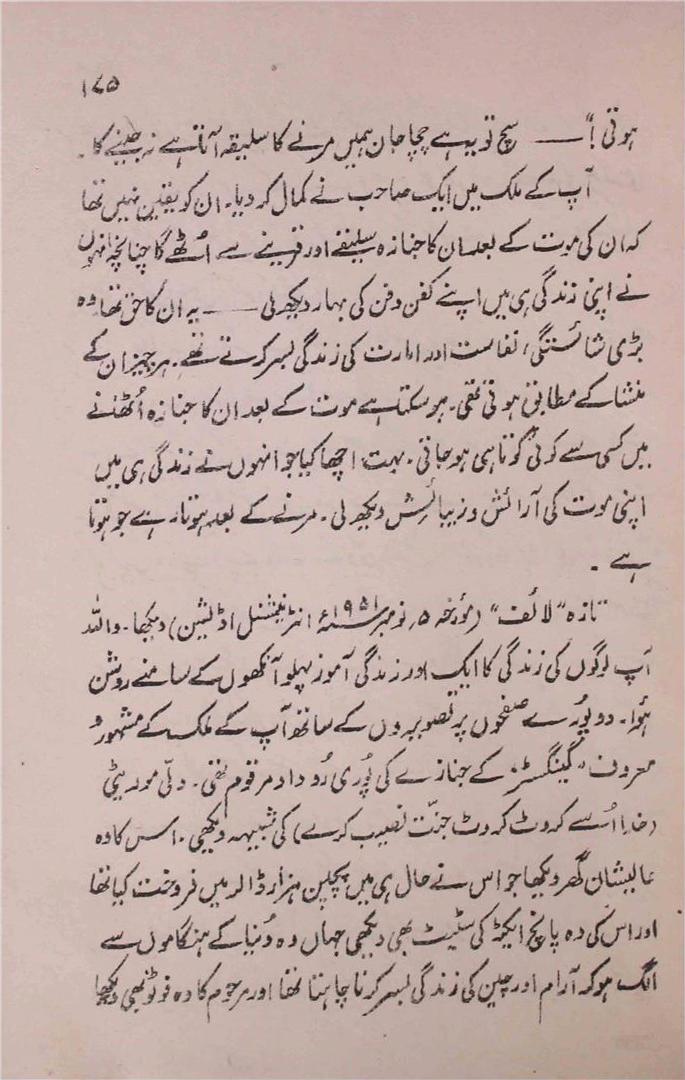 ۱۷۵
ہوتی!“ —— سچ تو یہ ہے چچا جان ہمیں مرنے کا سلیقہ آتا ہے نہ جینے کا۔
آپ کے ملک میں ایک صاحب نے کمال کر دیا۔ ان کو یقین نہیں تھا
کہ ان کی موت کے بعد ان کا جنازہ سلیقے اور قرینے سے اُٹھے گا چنانچہ انہوں
نے اپنی زندگی ہی میں اپنے کفن دفن کی بہار دیکھ لی —— یہ ان کا حق تھا، وہ
بڑی شائستگی، نفاست اور امارت کی زندگی بسر کرتے تھے۔ ہر چیز ان کے
منشا کے مطابق ہوتی تھی۔ ہو سکتا ہے موت کے بعد ان کا جنازہ اُٹھنے
میں کسی سے کوئی کوتاہی ہو جاتی۔ بہت اچھا کیا جو انہوں نے زندگی ہی میں
اپنی موت کی آرائش و زیبائش دیکھ لی۔ مرنے کے بعد ہوتا رہے جو ہوتا
ہے۔
تازہ ”لائف“ (مؤرخہ ۵؍ نومبر ۱۹۵۱ء انٹرنیشنل اڈیشن) دیکھا۔ واللہ
آپ لوگوں کی زندگی کا ایک اور زندگی آموز پہلو آنکھوں کے سامنے روشن
ہوا۔ دو پُورے صفحوں پر تصویروں کے ساتھ آپ کے ملک کے مشہور و
معروف ”گینگسٹر“ کے جنازے کی پُوری رُوداد مرقوم تھی۔ ولّی موریٹی
(خدا اسے کروٹ کروٹ جنّت نصیب کرے) کی شبیہہ دیکھی۔ اس کا وہ
عالیشان گھر دیکھا جو اس نے حال ہی میں پچپن ہزار ڈالر میں فروخت کیا تھا
اور اس کی وہ پانچ ایکڑ کی سٹیٹ بھی دیکھی جہاں وہ دُنیا کے ہنگاموں سے
الگ ہو کر آرام اور چین کی زندگی بسر کرنا چاہتا تھا اور مرحوم کا وہ فوٹو بھی دیکھا